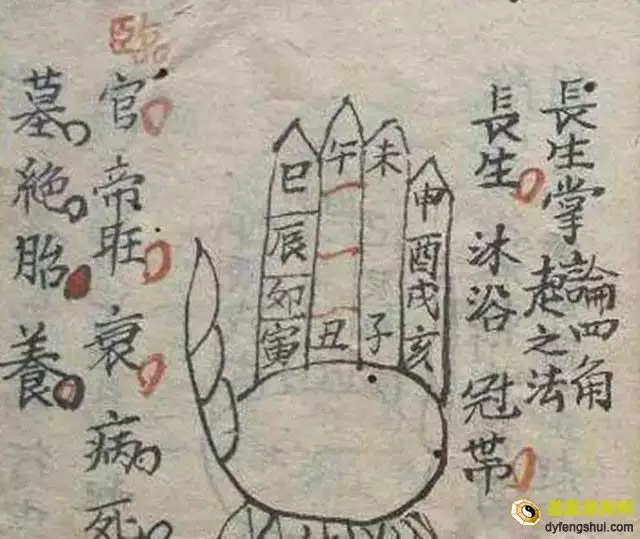 長生掌
論四角
起之法
長生 沐浴 冠帶
申酉戌亥
未子
午丑
巳辰卯寅
臨官 帝旺 衰 病 死
墓 絶 胎 養
dyfengshui.com